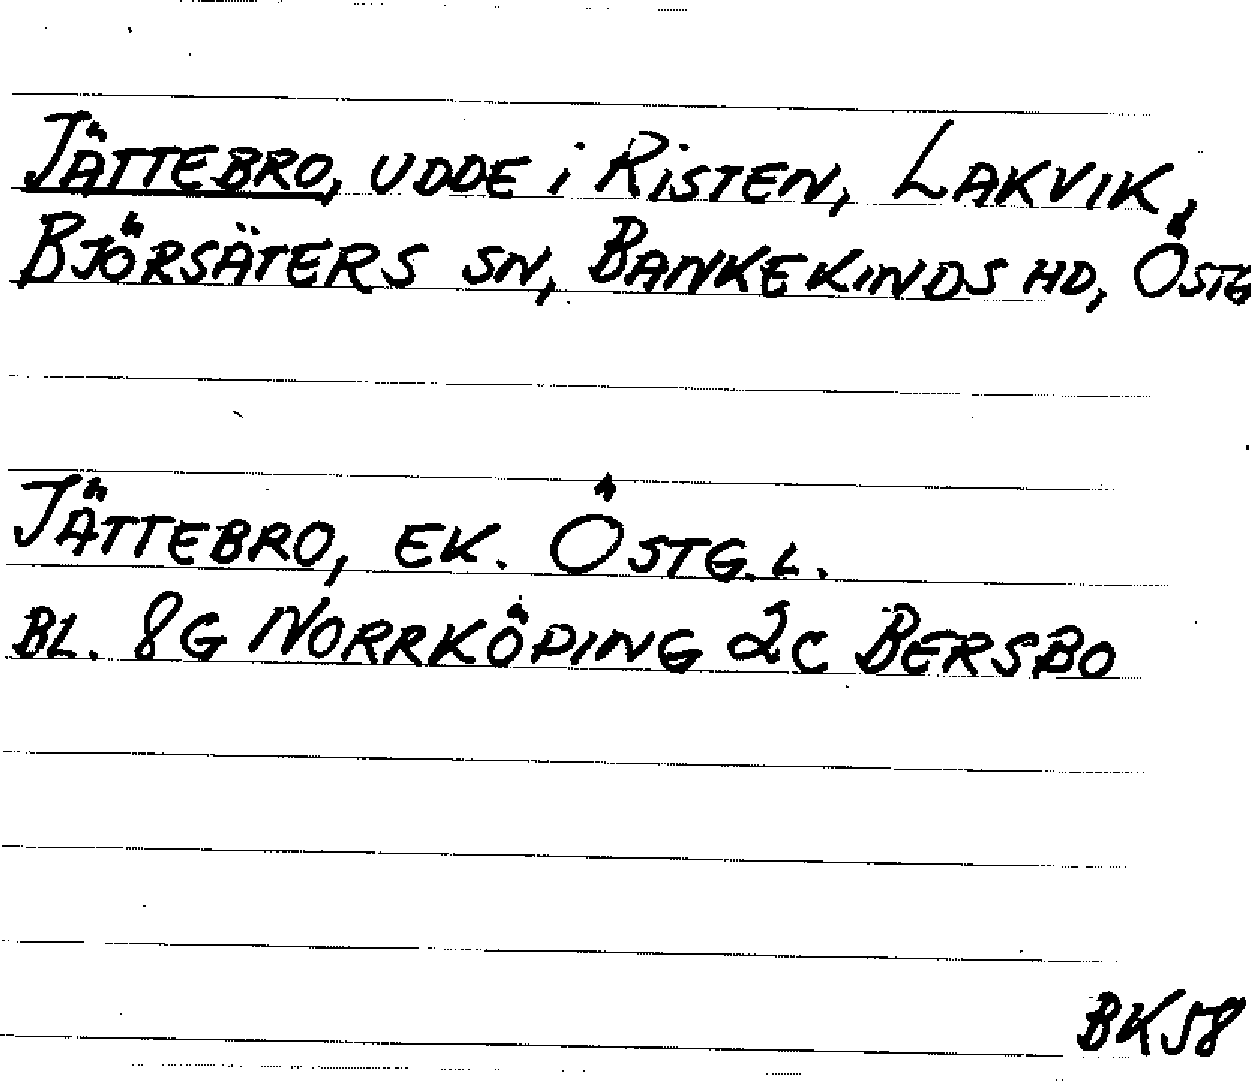 JÄTTEBRO, UDDE i RiSTEN, LAKVIK,
BJÖRSÄTERS SN, BANKEKINDS HD, ÖSTG
JÄTTEBRO, EK. ÖSTG.L.
BL. 8G NORRKÖPING 2C BERSBO
BK58